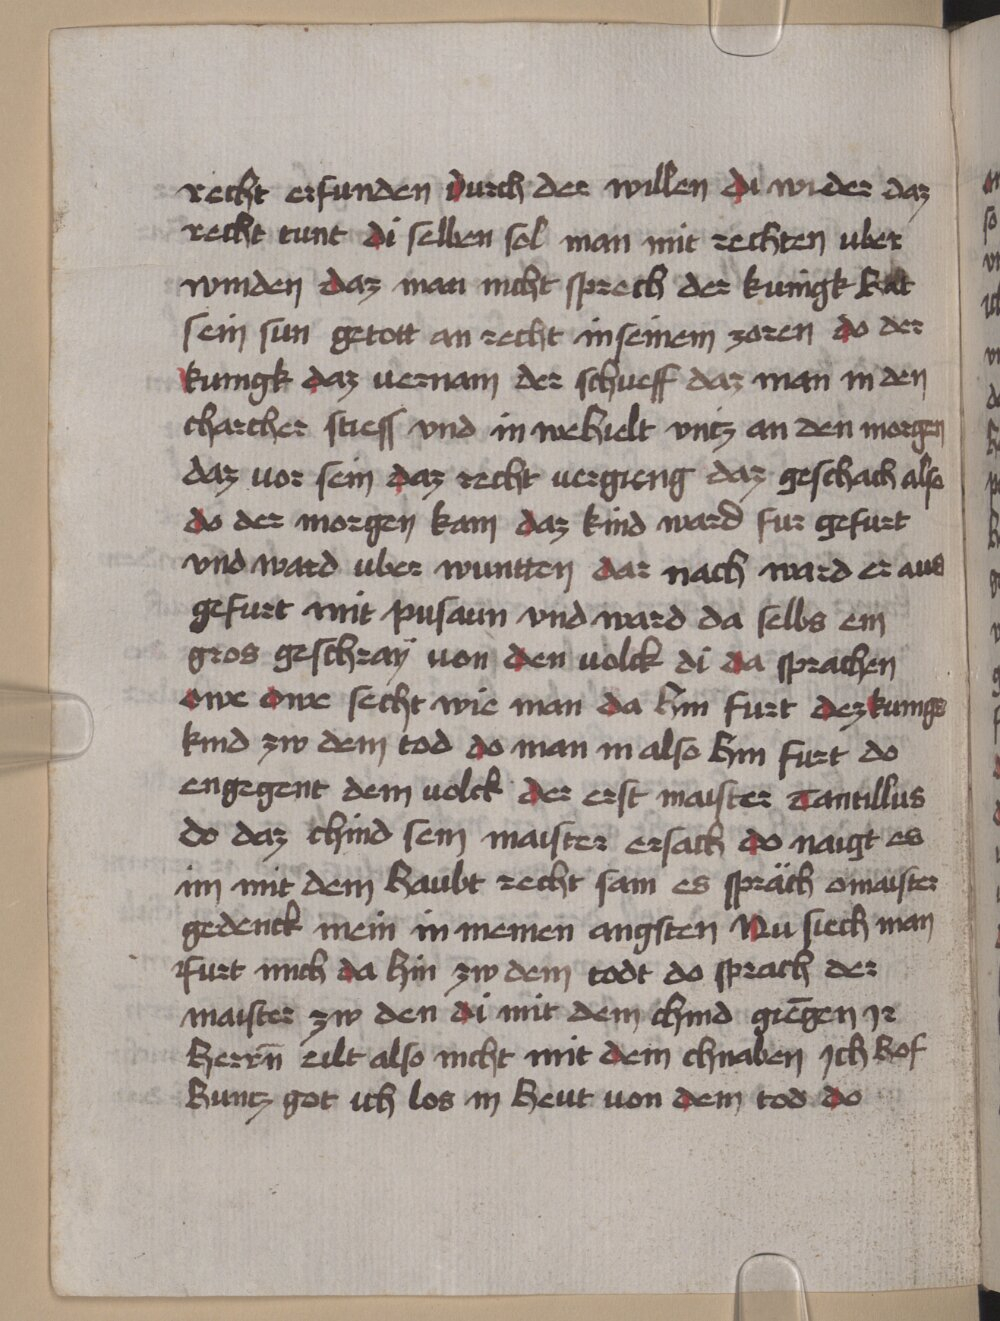 recht erfunden durch der willen di wider daz
recht tunt di selben sol man mit rechten uber
winden daz man nicht sprech der kunigk hat
sein sun getott an recht in seinem zoren do der
kunigk daz vernam der schueff daz man in den
charcher stiess vnd in wehielt vntz an den morgen
daz vor sein daz recht vergieng daz geschach also
do der morgen kam daz kind ward fur gefurt
vnd ward uber wuntten dar nach ward er aus
gefurt mit pusaun vnd ward da selbs ein
gros geschraÿ von den volck di da sprachen
owe owe secht wie man da hin furt dez kunigs
kind zw dem tod do man in also hin furt do
engegent dem volck der erst maister Tantillus
do daz chind sein maister ersach do naigt es
im mit dem haubt recht sam es spräch o maister
gedenck mein in meinen angsten Nu siech man
furt mich da hin zw dem todt do sprach der
maister zw den di mit dem chind giēgen Ir
herrn̄ eilt also nicht mit dem chnaben Ich hof
huntz got ich los in heut von dem tod do